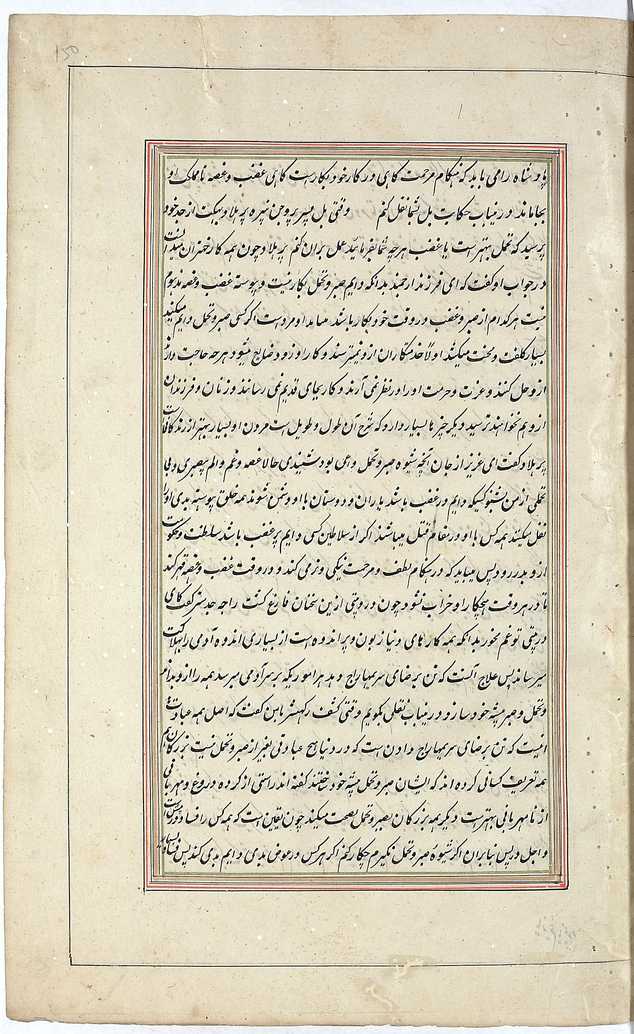 150
پادشاه را می باید که هنگام مرحمت کاهی در کار خود بکارست کاهی غضب و غصه تا ممالک او
بجا ماند درین باب حکایت بل بشما نقل کنم وقتی بل پسر پروجن نبیره پرهلاد بهکت از جد خود
پرسید که تحمل بهترست یا غضب هرچه شما بفرمائید عمل بران کنم پرهلاد چون همه کار خیر ان میدانست
در جواب او گفت که ای فرزند ارجمند بدانکه دایم صبر و تحمل بکار نیست و پیوسته غضب و غصه هم سودم
نیست هر کدام از صبر و غضب در وقت خود بکار باشد میباید او مردست اگر کسی صبر و تحمل دایم میکند
بسیار کلفت و محنت میکشد اولا خدمتگاران ازو نمیترسند و کار او زود ضایع میشود هرچه حاجت دارند
ازو حل کنند و عزت و حرمت او را در نظر نمی آرند و کار بجای قدیم نمی رسانند و زنان و فرزندان
ازو هم نخواهند ترسید دیگر چیزها بسیار دارد که شرح آن طول و طویل است مردن او بسیار بهتر از زندگانیست
پرهلاد گفت ای عزیز از جان آنچه شیوه صبر و تحمل دایمی بود شنیدی حالا غصه و غم و الم بیصبری و بی
تحملی از من بشنو کسیکه دایم در غضب باشد یاران و دوستان با او دشمن شوند همه خلق پیوسته بدی او را
نقل میکنند همه کس با او در مقام قتل میباشند اگر از سلاطین کسی دایم پر غضب باشد سلطنت و حکومت
ازو بدر رود پس میباید که در هنگام لطف و مرحمت نیکی و نرمی کند و در وقت غضب و غصه قهر کند
تا در هر وقت هیچکار او خراب نشود چون دروپتی ازین سخنان فارغ گشت راجه جدهشتر گفت که ای
دروپتی تو غم مخور بدانکه همه کارهای دنیا زبون و پر اندوه است از بسیاری اندوه آدمی را بهلاکت
میرساند پس علاج آنست که تن برضای سریمهاراج و بدهد هر امور یکه بر سر آدمی میرسد همه را ازو بداند
و تحمل و صبر پیشه خود سازد درین باب نقلی بگویم وقتی کشف رکهیشر با من گفت که اصل همه عبادت
اینست که تن برضای سریمهاراج دادن است که در دنیا هیچ عبادتی بغیر از صبر و تحمل نیست بزرگان هم
همه تعریف کسانی کرده اند که ایشان صبر و تحمل پیشه خود ساختند گفته اند راستی از کرده دروغ و مهربانی
از نامهربانی بهترست دیگر همه بزرگان بصبر و تحمل نصیحت میکنند چون یقین است که همه کس را فساد در پیش است
و اجل در پس بنابران اگر شیوه صبر و تحمل نگیرم چکار کنم اگر هر کس در عوض بدی دایم بدی کند پس فساد بسیار